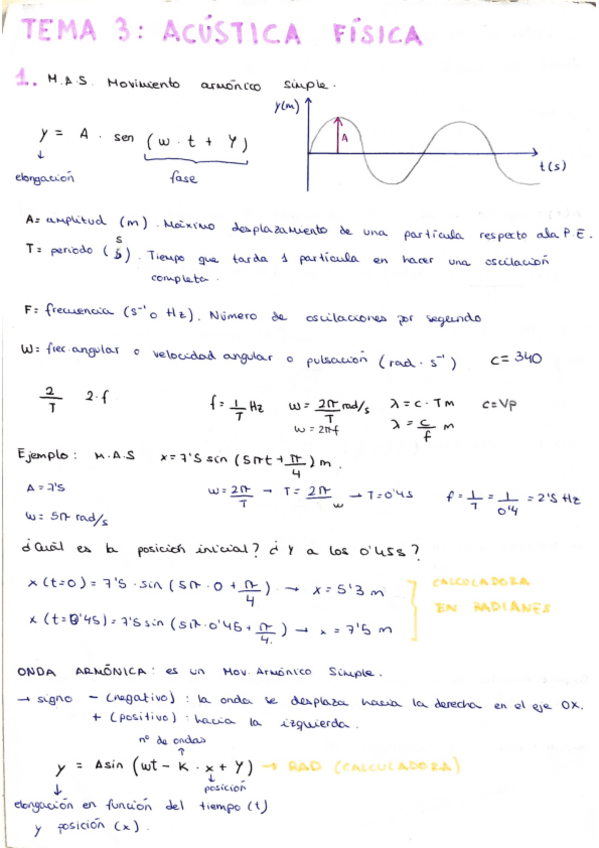 TEMA 3: ACÚSTICA FÍSICA
1. M.A.S. Movimiento armónico simple.
y(m)
A
t(s)
y = A · sen (w · t + Y)
elongación fase
A = amplitud (m). Máximo desplazamiento de una partícula respecto a la P.E.
T = periodo (s). Tiempo que tarda 1 partícula en hacer una oscilación
completa.
F = frecuencia (s⁻¹ o Hz). Número de oscilaciones por segundo
W = frec. angular o velocidad angular o pulsación (rad · s⁻¹) c = 340
2/T 2·f f = 1/T Hz w = 2π/T rad/s λ = c · T m c = Vp
w = 2πf λ = c/f m
Ejemplo: M.A.S x = 7'5 sin (5πt + π/4) m.
A = 7'5 w = 2π/T → T = 2π/w → T = 0'4s f = 1/T = 1/0'4 = 2'5 Hz
w = 5π rad/s
¿Cuál es la posición inicial? ¿Y a los 0'45s?
x (t=0) = 7'5 · sin (5π · 0 + π/4) → x = 5'3 m
x (t=0'45) = 7'5 sin (5π · 0'45 + π/4) → x = 7'5 m
CALCULADORA
EN RADIANES
ONDA ARMÓNICA: es un Mov. Armónico Simple.
→ signo - (negativo): la onda se desplaza hacia la derecha en el eje OX.
+ (positivo): hacia la izquierda.
nº de ondas
y = A sin (wt - K · x + Y) → RAD (CALCULADORA)
posición
elongación en función del tiempo (t)
y posición (x).